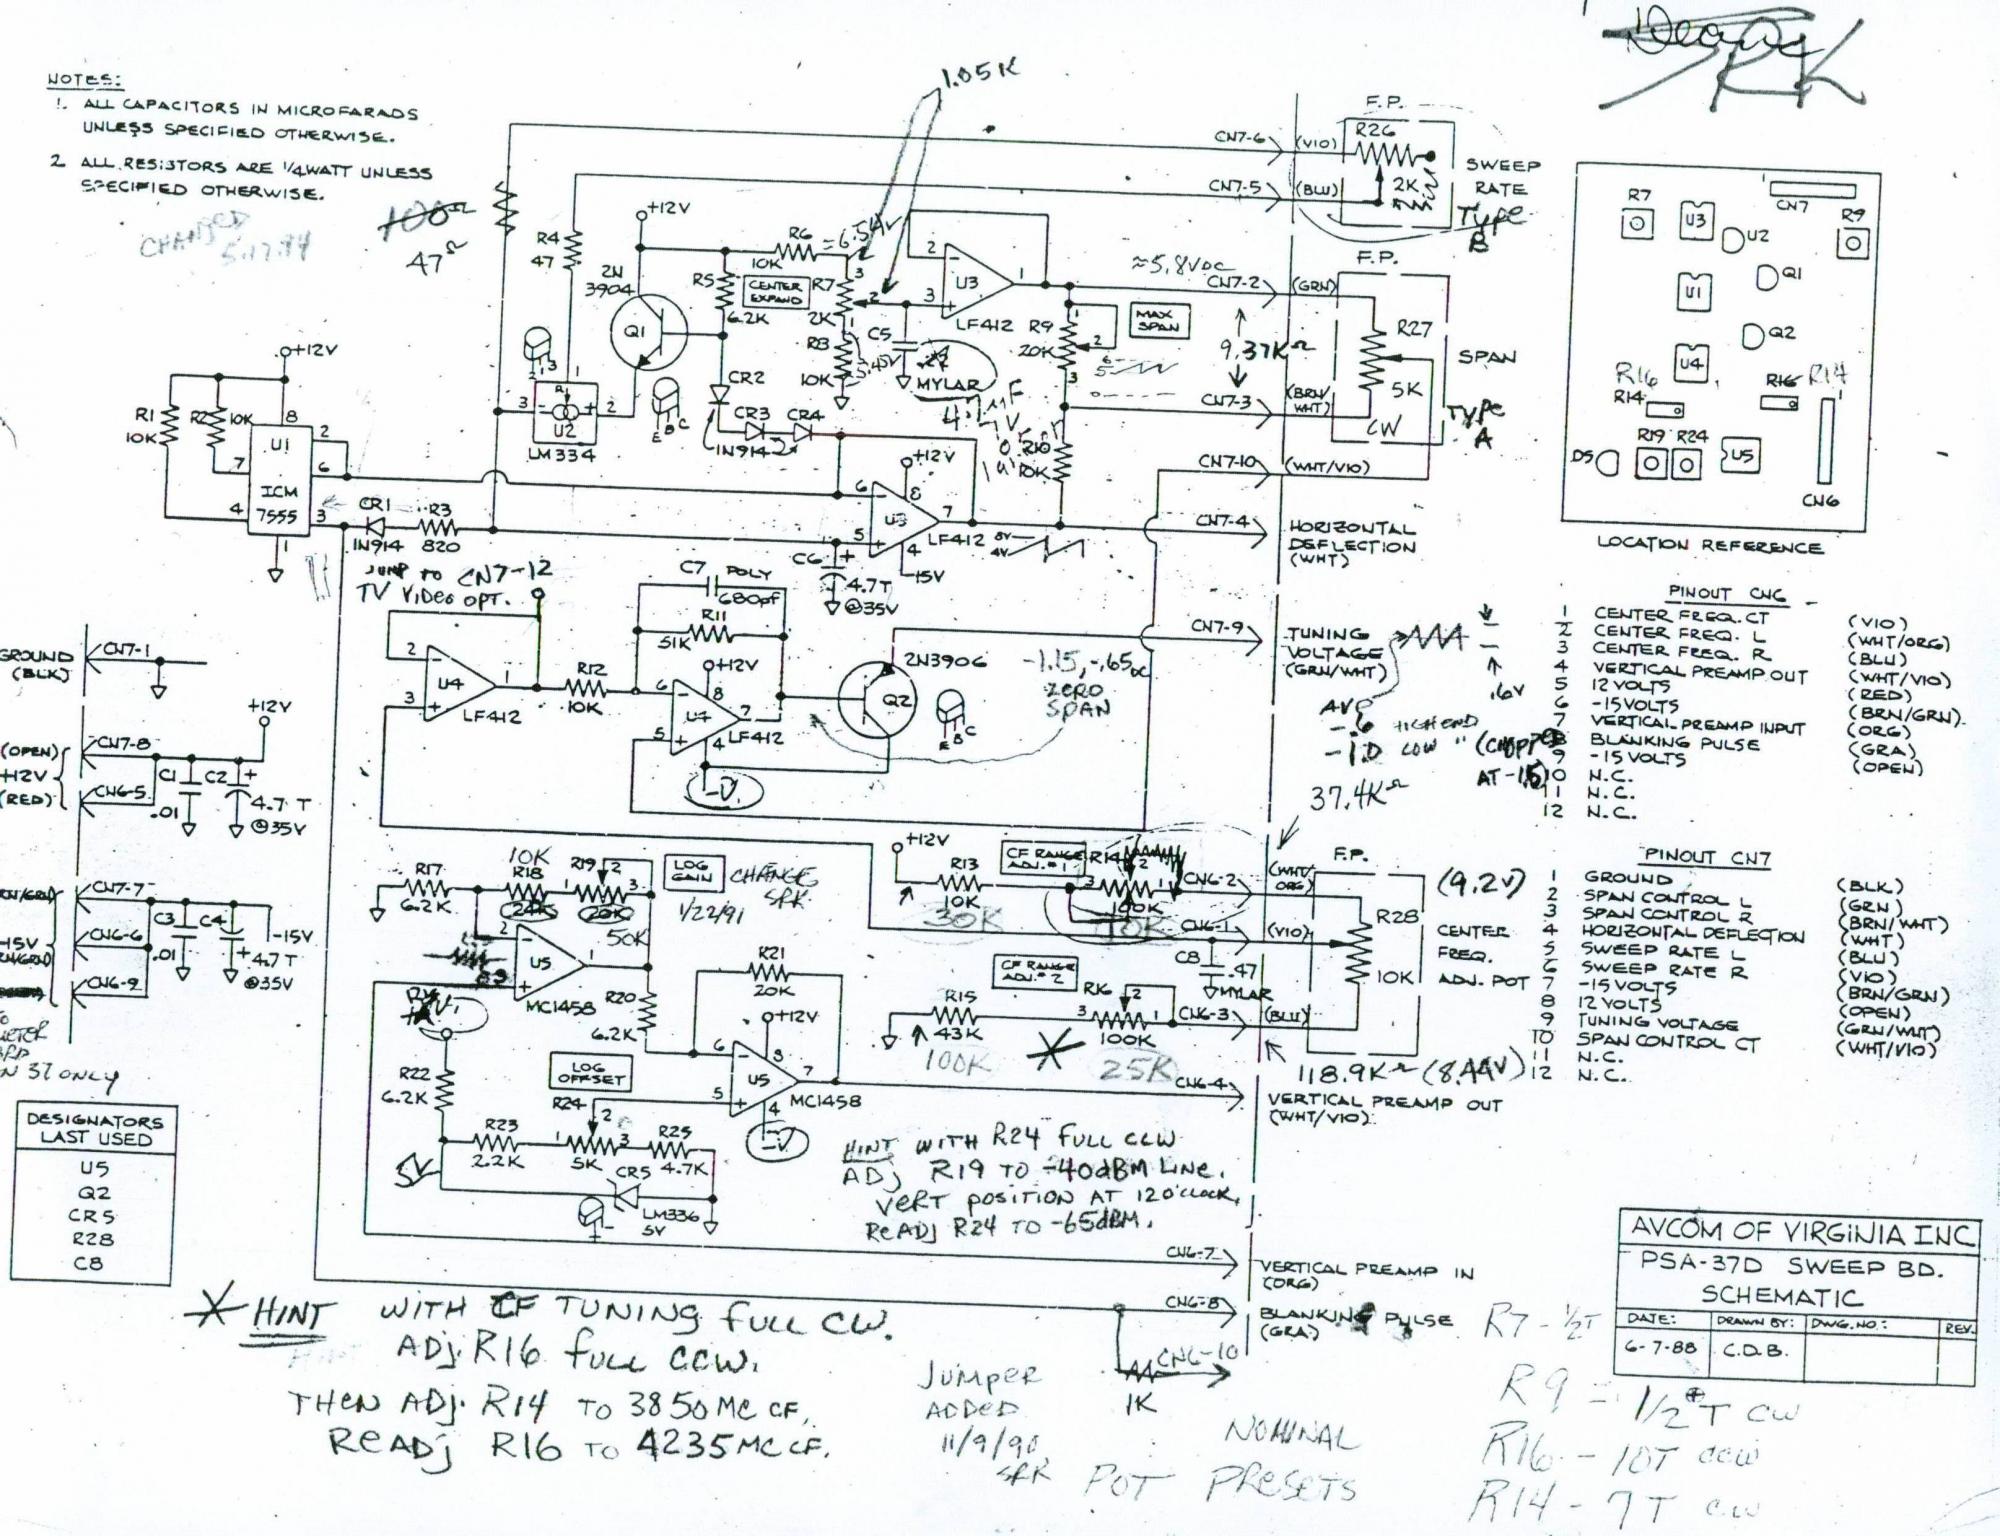 NOTES:
1. ALL CAPACITORS IN MICROFARADS
UNLESS SPECIFIED OTHERWISE.
2 ALL RESISTORS ARE 1/4 WATT UNLESS
SPECIFIED OTHERWISE.
CHANGED
5.17.94
100Ω
47Ω
1.05K
+12V
R4
47
2N
3904
Q1
R5
6.2K
R6
10K
≈6.54V
CENTER
EXPAND
R7
2K
R8
10K
5.45V
C5
.22
MYLAR
2
3
1
U3
LF412
≈5.8VDC
R9
20K
MAX
SPAN
9.37KΩ
R10
10K
CN7-6
(VIO)
CN7-5
(BLU)
F.P.
R26
2K
SWEEP
RATE
TYPE
B
CN7-2
(GRN)
F.P.
R27
5K
CW
SPAN
TYPE
A
CN7-3
(BRN/
WHT)
CN7-10
(WHT/VIO)
CN7-4
HORIZONTAL
DEFLECTION
(WHT)
R7
U3
CN7
R9
U2
U1
Q1
Q2
U4
R16
R14
R16
R14
R19
R24
D5
U5
CN6
LOCATION REFERENCE
+12V
R1
10K
R2
10K
U1
ICM
7555
8
2
6
7
4
3
1
CR1
1N914
R3
820
3
2
1
U2
LM334
E B C
CR2
CR3
CR4
1N914
+12V
6
5
8
7
4
U3
LF412
-15V
8V
4V
C6
4.7T
@35V
JUMP TO CN7-12
TV VIDEO OPT.
C7
POLY
680pf
R11
51K
2
3
1
U4
LF412
R12
10K
+12V
6
5
8
7
4
U4
LF412
-V
2N3906
Q2
E B C
-1.15, -.65DC
ZERO
SPAN
CN7-9
TUNING
VOLTAGE
(GRN/WHT)
.6V
AVG
-.6 HIGH END
-1.0 LOW " (CHOPPED
AT -1.5)
37.4KΩ
GROUND
(BLK)
CN7-1
+12V
(OPEN)
CN7-8
+12V
(RED)
CN6-5
C1
.01
C2
4.7 T
@35V
CN7-7
-15V
CN6-6
CN6-9
C3
.01
C4
4.7 T
@35V
-15V
37 ONLY
DESIGNATORS
LAST USED
U5
Q2
CR5
R28
C8
R17
6.2K
10K
R18
24K
R19
20K
50K
LOG
GAIN
CHANGE
SRK
1/22/91
2
1
U5
MC1458
R20
6.2K
R21
20K
+12V
6
5
8
7
4
U5
MC1458
-V
R22
6.2K
LOG
OFFSET
R24
5K
R23
2.2K
R25
4.7K
CR5
LM336
5V
5V
+12V
R13
10K
30K
CF RANGE
ADJ. #1
R14
100K
10K
CN6-2
(WHT/
ORG)
CN6-1
(VIO)
C8
.47
MYLAR
CF RANGE
ADJ. #2
R15
43K
100K
R16
100K
25K
CN6-3
(BLU)
F.P.
(9.2V)
R28
10K
CENTER
FREQ.
ADJ. POT
118.9KΩ (8.44V)
CN6-4
VERTICAL PREAMP OUT
(WHT/VIO)
HINT WITH R24 FULL CCW
ADJ R19 TO -40dBM LINE.
VERT POSITION AT 12 O'CLOCK.
READJ R24 TO -65dBM.
CN6-7
VERTICAL PREAMP IN
(ORG)
CN6-8
BLANKING PULSE
(GRA)
CN6-10
1K
PINOUT CN6
1 CENTER FREQ. CT (VIO)
2 CENTER FREQ. L (WHT/ORG)
3 CENTER FREQ. R (BLU)
4 VERTICAL PREAMP OUT (WHT/VIO)
5 12 VOLTS (RED)
6 -15 VOLTS (BRN/GRN)
7 VERTICAL PREAMP INPUT (ORG)
8 BLANKING PULSE (GRA)
9 -15 VOLTS (OPEN)
10 N.C.
11 N.C.
12 N.C.
PINOUT CN7
1 GROUND (BLK)
2 SPAN CONTROL L (GRN)
3 SPAN CONTROL R (BRN/WHT)
4 HORIZONTAL DEFLECTION (WHT)
5 SWEEP RATE L (BLU)
6 SWEEP RATE R (VIO)
7 -15 VOLTS (BRN/GRN)
8 12 VOLTS (OPEN)
9 TUNING VOLTAGE (GRN/WHT)
10 SPAN CONTROL CT (WHT/VIO)
11 N.C.
12 N.C.
HINT WITH CF TUNING FULL CW.
ADJ. R16 FULL CCW.
THEN ADJ. R14 TO 3850MC CF.
READJ R16 TO 4235MC CF.
JUMPER
ADDED
11/9/90
SRK
NOMINAL
POT PRESETS
R7 - 1/2 T
R9 = 1/2 T CW
R16 - 10T CCW
R14 - 7T CW
AVCOM OF VIRGINIA INC
PSA-37D SWEEP BD.
SCHEMATIC
DATE:
6-7-88
DRAWN BY:
C.D.B.
DWG. NO.:
REV.